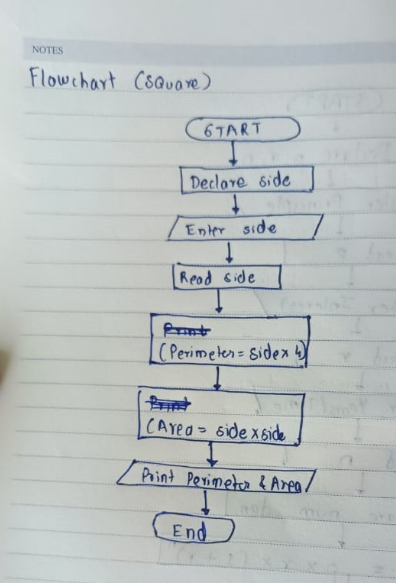 NOTES
Flowchart (Square)
START
Declare side
Enter side
Read side
Print
(Perimeter = side x 4)
Print
(Area = side x side
Print Perimeter & Area
End